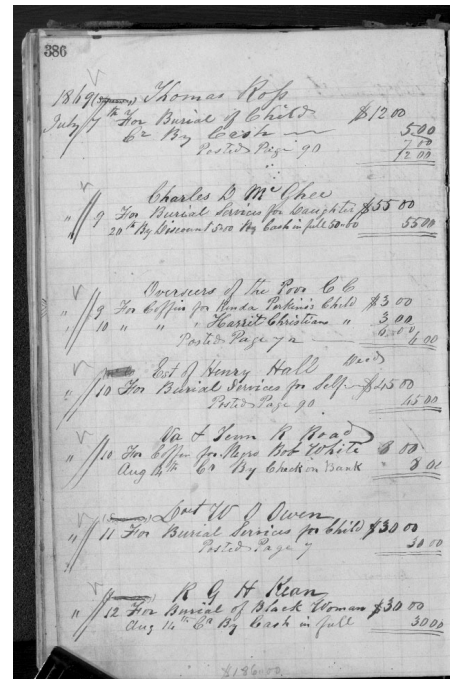 386
1869 Thomas Ross
July 7th For Burial of Child $12 00
Cr By Cash 5 00
Posted Page 90 7 00
12 00
Charles D McGhee
" 9 For Burial Services for Daughter $55 00
20th By Discount 5.00 By Cash in full 50.00 55 00
Overseers of the Poor C C
" 9 For Coffin for Perkins Child $3 00
" 10 " " " Harriet Christians " 3 00
Posted Page 72 6 00
Est of Henry Hall Deed
" 10 For Burial Services for Self $45 00
Posted Page 90 45 00
Va & Tenn R Road
" 10 For Coffin for Negro Bob White 8 00
Aug 14th Cr By Check on Bank 8 00
W O Owen
" 11 For Burial Services for Child $30 00
Posted Page 7 30 00
R G H Kean
" 12 For Burial of Black Woman $30 00
Aug 14th Cr By Cash in full 30 00
$186.00